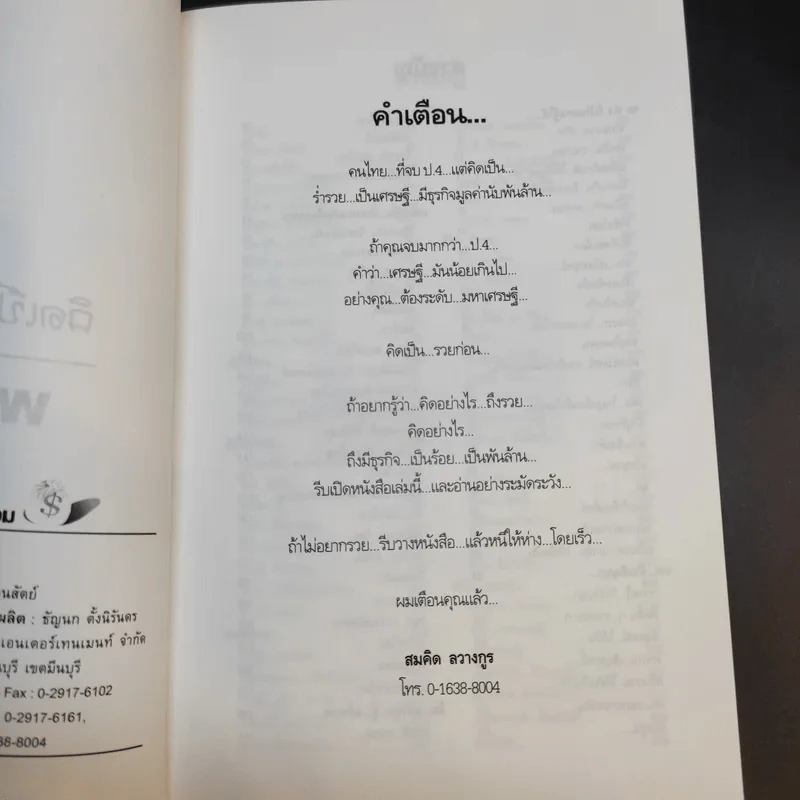 คำเตือน...
คนไทย...ที่จบ ป.4...แต่คิดเป็น...
ร่ำรวย...เป็นเศรษฐี...มีธุรกิจมูลค่านับพันล้าน...
ถ้าคุณจบมากกว่า...ป.4...
คำว่า...เศรษฐี...มันน้อยเกินไป...
อย่างคุณ...ต้องระดับ...มหาเศรษฐี...
คิดเป็น...รวยก่อน...
ถ้าอยากรู้ว่า...คิดอย่างไร...ถึงรวย...
คิดอย่างไร...
ถึงมีธุรกิจ...เป็นร้อย...เป็นพันล้าน...
รีบเปิดหนังสือเล่มนี้...และอ่านอย่างระมัดระวัง...
ถ้าไม่อยากรวย...รีบวางหนังสือ...แล้วหนีให้ห่าง...โดยเร็ว...
ผมเตือนคุณแล้ว...
สมคิด ลวางกูร
โทร. 0-1638-8004
นสัตย์
ผลิต : ธัญนก ตั้งนิรันดร
เอนเตอร์เทนเมนท์ จำกัด
นบุรี เขตมีนบุรี
Fax : 0-2917-6102
0-2917-6161,
38-8004